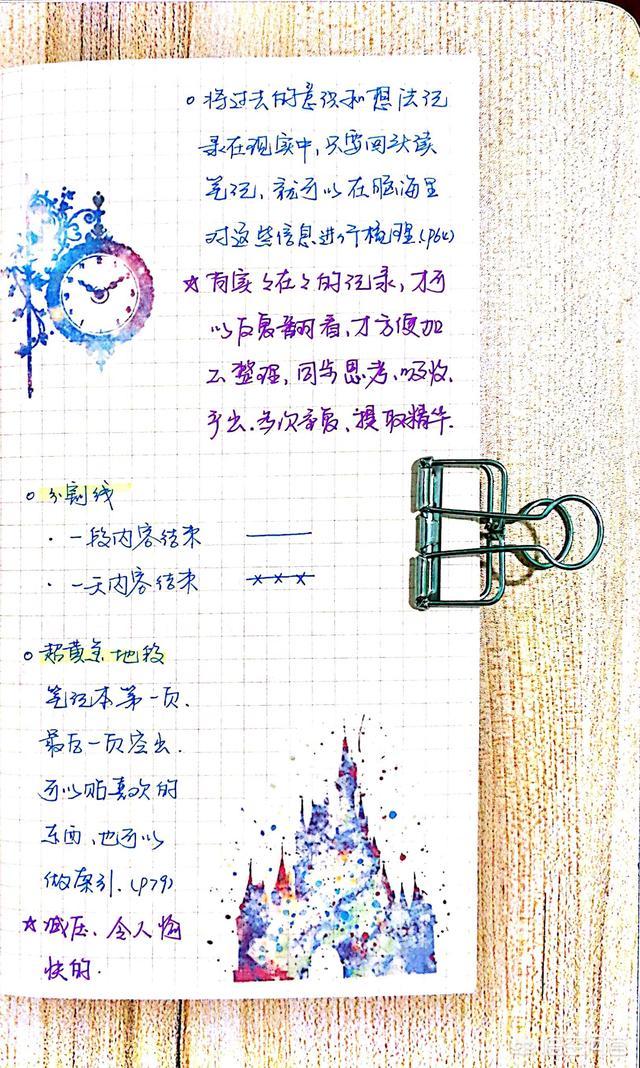 ○ 将过去的意识和想法记
录在现实中,只要回头读
笔记,就可以在脑海里
对这些信息进行梳理(P64)
☆ 有实々在々的记录,才可
以反复翻看,才方便加
工整理,同步思考、吸收、
产出.每次重复、提取精华.
○ 分割线
· 一段内容结束 ———
· 一天内容结束 ×××
○ 超黄金地段
笔记本第一页、
最后一页空出.
可以贴喜欢的
东西,也可以
做索引.(P79)
☆ 减压、令人愉
快的.